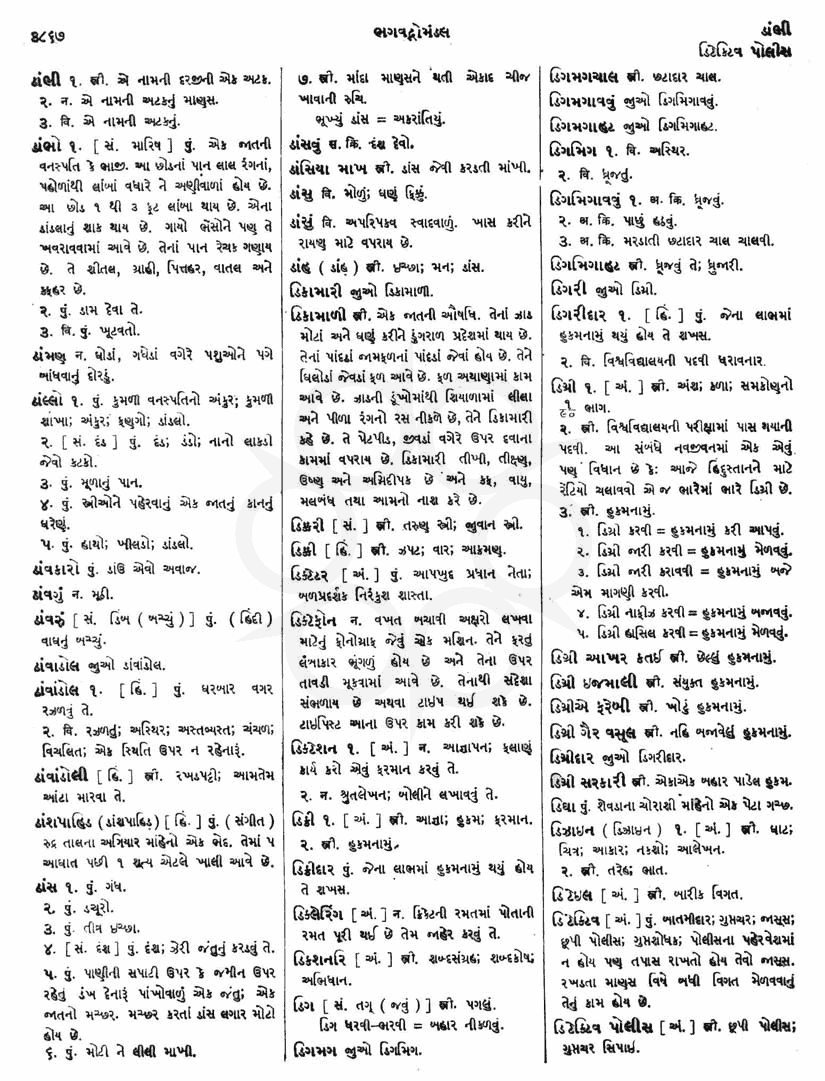 ૩૮૬૭
ભગવદ્ગોમંડલ
ડાંભી
ડિટેક્ટિવ પોલીસ
ડાંભી ૧. સ્ત્રી. એ નામની દરજીની એક અટક.
૨. ન. એ નામની અટકનું માણસ.
૩. વિ. એ નામની અટકનું.
ડાંભો ૧. [ સં. મારિષ ] પું. એક જાતની
વનસ્પતિ કે ભાજી. આ છોડનાં પાન લાલ રંગનાં,
પહોળાંથી લાંબાં વધારે ને અણીવાળાં હોય છે.
આ છોડ ૧ થી ૩ ફૂટ લાંબા થાય છે. એના
ડાંડલાનું શાક થાય છે. ગાયો ભેંસોને પણ તે
ખવરાવવામાં આવે છે. તેનાં પાન રેચક ગણાય
છે. તે શીતલ, ગ્રાહી, પિત્તહર, વાતલ અને
કફહર છે.
૨. પું. ડામ દેવા તે.
૩. વિ. પું. ખૂટવતો.
ડાંમણ ન. ઘોડાં, ગધેડાં વગેરે પશુઓને પગે
બાંધવાનું દોરડું.
ડાંલ્લો ૧. પું. કુમળી વનસ્પતિનો અંકુર; કુમળી
શાખા; અંકુર; ફણગો; ડાંડલો.
૨. [ સં. દંડ ] પું. દંડ; ડંડો; નાનો લાકડો
જેવો કટકો.
૩. પું. મૂળાનું પાન.
૪. પું. સ્ત્રીઓને પહેરવાનું એક જાતનું કાનનું
ઘરેણું.
૫. પું. હાથો; ખીલડો; ડાંડલો.
ડાંવકારો પું. ડાંઉ એવો અવાજ.
ડાંવગું ન. મૂઢી.
ડાંવરું [ સં. ડિંબ ( બચ્ચું ) ] પું. ( હિંદી )
વાઘનું બચ્ચું.
ડાંવાડોલ જુઓ ડાંવાંડોલ.
ડાંવાંડોલ ૧. [ હિં. ] પું. ઘરબાર વગર
રઝળવું તે.
૨. વિ. રઝળતું; અસ્થિર; અસ્તવ્યસ્ત; ચંચળ;
વિચલિત; એક સ્થિતિ ઉપર ન રહેનારૂં.
ડાંવાંડોલી [ હિં. ] સ્ત્રી. રખડપટ્ટી; આમતેમ
આંટા મારવા તે.
ડાંશપાહિડ ( ડાંશપાહિડ઼ ) [ હિં. ] પું. ( સંગીત )
રુદ્ર તાલના અગિયાર માંહેનો એક ભેદ. તેમાં ૫
આઘાત પછી ૧ શૂન્ય એટલે ખાલી આવે છે.
ડાંસ ૧. પું. ગંધ.
૨. પું. ડચૂરો.
૩. પું. તીવ્ર ઇચ્છા.
૪. [ સં. દંશ ] પું. દંશ; ઝેરી જંતુનું કરડવું તે.
૫. પું. પાણીની સપાટી ઉપર કે જમીન ઉપર
રહેતું ડંખ દેનારૂં પાંખોવાળું એક જંતુ; એક
જાતનો મચ્છર. મચ્છર કરતાં ડાંસ લગાર મોટો
હોય છે.
૬. પું. મોટી ને લીલી માખી.
૭. સ્ત્રી. માંદા માણસને થતી એકાદ ચીજ
ખાવાની રુચિ.
ભૂખ્યું ડાંસ = અકરાંતિયું.
ડાંસવું સ. ક્રિ. દંશ દેવો.
ડાંસિયા માખ સ્ત્રી. ડાંસ જેવી કરડતી માંખી.
ડાંસુ વિ. મોળું; ઘણું ફિકું.
ડાંસું વિ. અપરિપક્વ સ્વાદવાળું. ખાસ કરીને
રાયણુ માટે વપરાય છે.
ડાંહ ( ડાંહ઼ ) સ્ત્રી. ઇચ્છા; મન; ડાંસ.
ડિકામારી જુઓ ડિકામાળી.
ડિકામાળી સ્ત્રી. એક જાતની ઔષધિ. તેનાં ઝાડ
મોટાં અને ઘણું કરીને ડુંગરાળ પ્રદેશમાં થાય છે.
તેનાં પાંદડાં જામફળનાં પાંદડાં જેવાં હોય છે. તેને
બિલોડાં જેવડાં ફળ આવે છે. ફળ અથાણામાં કામ
આવે છે. ઝાડની ડૂંખોમાંથી શિયાળામાં લીલા
અને પીળા રંગનો રસ નીકળે છે, તેને ડિકામારી
કહે છે. તે પેટપીડ, જીવડાં વગેરે ઉપર દવાના
કામમાં વપરાય છે. ડિકામારી તીખી, તીક્ષ્ણ,
ઉષ્ણ અને અગ્નિદીપક છે અને કફ, વાયુ,
મલબંધ તથા આમનો નાશ કરે છે.
ડિક્કરી [ સં. ] સ્ત્રી. તરુણ સ્ત્રી; જુવાન સ્ત્રી.
ડિક્કી [ હિં. ] સ્ત્રી. ઝપટ; વાર; આક્રમણ.
ડિક્ટેટર [ અં. ] પું. આપખુદ પ્રધાન નેતા;
બળપ્રદર્શક નિરંકુશ શાસ્તા.
ડિક્ટેફોન ન. વખત બચાવી અક્ષરો લખવા
માટેનું ફોનોગ્રાફ જેવું એક મશિન. તેને ફરતું
લંબાકાર ભૂંગળું હોય છે અને તેના ઉપર
તાવડી મૂકવામાં આવે છે. તેનાથી સંદેશા
સંભળાય છે અથવા ટાઇપ થઈ શકે છે.
ટાઇપિસ્ટ આના ઉપર કામ કરી શકે છે.
ડિક્ટેશન ૧. [ અં. ] ન. આજ્ઞાપન; ફલાણું
કાર્ય કરો એવું ફરમાન કરવું તે.
૨. ન. શ્રુતલેખન; બોલીને લખાવવું તે.
ડિક્રી ૧. [ અં. ] સ્ત્રી. આજ્ઞા; હુકમ; ફરમાન.
૨. સ્ત્રી. હુકમનામું.
ડિક્રીદાર પું. જેના લાભમાં હુકમનામું થયું હોય
તે શખસ.
ડિક્લેરિંગ [ અં. ] ન. ક્રિકેટની રમતમાં પોતાની
રમત પૂરી થઈ છે તેમ જાહેર કરવું તે.
ડિક્શનરિ [ અં. ] સ્ત્રી. શબ્દસંગ્રહ; શબ્દકોષ;
અભિધાન.
ડિગ [ સં. તગ્ ( જવું ) ] સ્ત્રી. પગલું.
ડિગ ધરવી–ભરવી = બહાર નીકળવું.
ડિગમગ જુઓ ડિગમિગ.
ડિગમગચાલ સ્ત્રી. છટાદાર ચાલ.
ડિગમગાવવું જુઓ ડિગમિગાવવું.
ડિગમગાહટ જુઓ ડિગમિગાહટ.
ડિગમિગ ૧. વિ. અસ્થિર.
૨. વિ. ધ્રૂજતું.
ડિગમિગાવવું ૧. અ. ક્રિ. ધ્રૂજવું.
૨. અ. ક્રિ. પાછું હઠવું.
૩. અ. ક્રિ. મરડાતી છટાદાર ચાલ ચાલવી.
ડિગમિગાહટ સ્ત્રી. ધ્રૂજવું તે; ધ્રુજારી.
ડિગરી જુઓ ડિગ્રી.
ડિગરીદાર ૧. [ હિં. ] પું. જેના લાભમાં
હુકમનામું થયું હોય તે શખસ.
૨. વિ. વિશ્વવિદ્યાલયની પદવી ધરાવનાર.
ડિગ્રી ૧. [ અં. ] સ્ત્રી. અંશ; કળા; સમકોણનો
૧/૯૦ ભાગ.
૨. સ્ત્રી. વિશ્વવિદ્યાલયની પરીક્ષામાં પાસ થયાની
પદવી. આ સંબંધે નવજીવનમાં એક એવું
પણ વિધાન છે કે: આજે હિંદુસ્તાનને માટે
રેંટિયો ચલાવવો એ જ ભારેમાં ભારે ડિગ્રી છે.
૩. સ્ત્રી. હુકમનામું.
૧. ડિગ્રી કરવી = હુકમનામું કરી આપવું.
૨. ડિગ્રી જારી કરવી = હુકમનામું મેળવવું.
૩. ડિગ્રી જારી કરાવવી = હુકમનામું બજે
એમ માગણી કરવી.
૪. ડિગ્રી નાફીઝ કરવી = હુકમનામું બજાવવું.
૫. ડિગ્રી હાસિલ કરવી = હુકમનામું મેળવવું.
ડિગ્રી આખર કતઈ સ્ત્રી. છેલ્લું હુકમનામું.
ડિગ્રી ઇજમાલી સ્ત્રી. સંયુક્ત હુકમનામું.
ડિગ્રીએ ફરેબી સ્ત્રી. ખોટું હુકમનામું.
ડિગ્રી ગૈર વસૂલ સ્ત્રી. નહિ બજાવેલું હુકમનામું.
ડિગ્રીદાર જુઓ ડિગરીદાર.
ડિગ્રી સરકારી સ્ત્રી. એકાએક બહાર પાડેલ હુકમ.
ડિઘા પું. શેવડાના ચોરાશી માંહેનો એક પેટા ગચ્છ.
ડિઝાઇન ( ડિઝાઇન ) ૧. [ અં. ] સ્ત્રી. ઘાટ;
ચિત્ર; આકાર; નકશો; આલેખન.
૨. સ્ત્રી. તરેહ; ભાત.
ડિટેઇલ [ અં. ] સ્ત્રી. બારીક વિગત.
ડિટેક્ટિવ [ અં. ] પું. બાતમીદાર; ગુપ્તચર; જાસૂસ;
છૂપી પોલીસ; ગુપ્તશોધક; પોલીસના પહેરવેશમાં
ન હોય પણ તપાસ રાખતો હોય તેવો જાસૂસ.
રખડતા માણસ વિષે બધી વિગત મેળવવાનું
તેનું કામ હોય છે.
ડિટેક્ટિવ પોલીસ [ અં. ] સ્ત્રી. છૂપી પોલીસ;
ગુપ્તચર સિપાઈ.